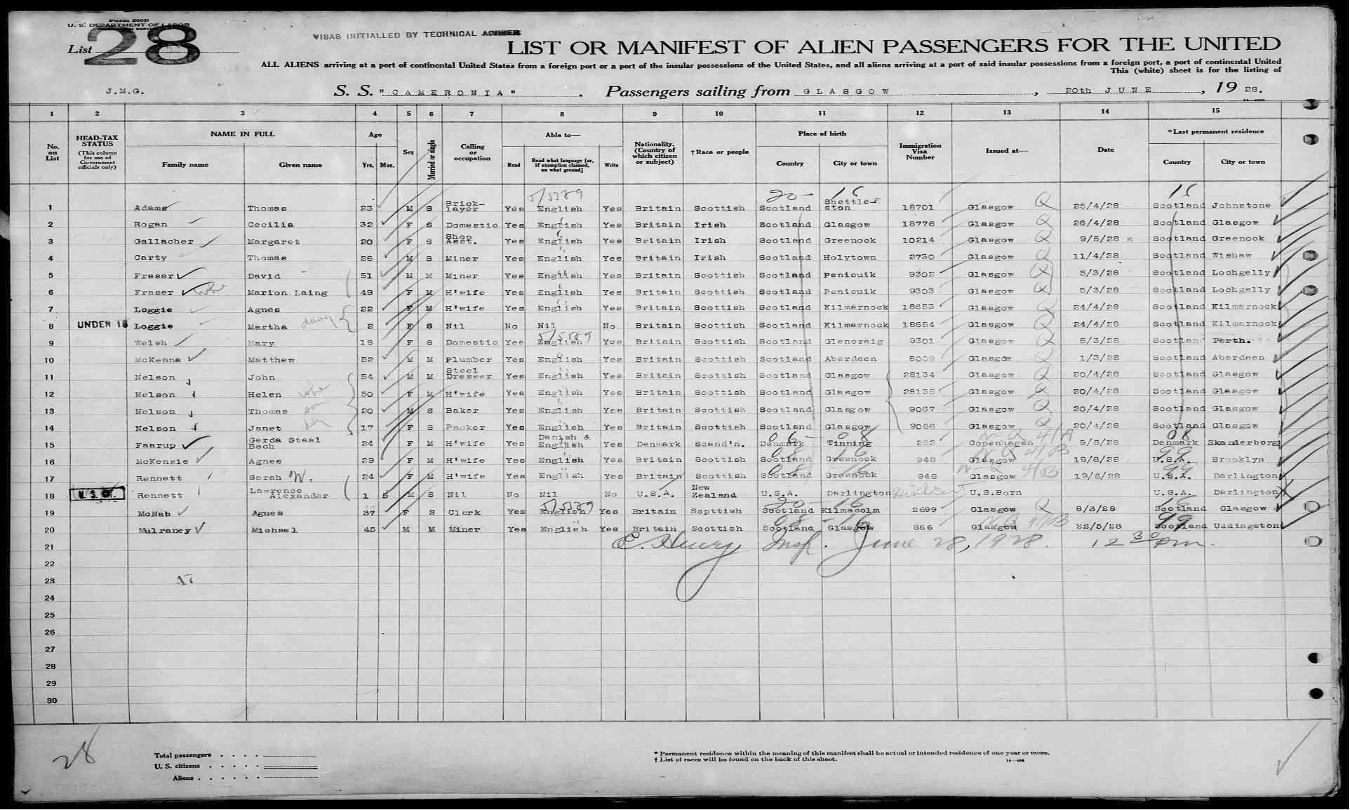 Form 500B
U. S. DEPARTMENT OF LABOR
List 28
VISAS INITIALLED BY TECHNICAL ADVISER
LIST OR MANIFEST OF ALIEN PASSENGERS FOR THE UNITED
ALL ALIENS arriving at a port of continental United States from a foreign port or a port of the insular possessions of the United States, and all aliens arriving at a port of said insular possessions from a foreign port, a port of continental United
This (white) sheet is for the listing of
J.M.G. S. S. "CAMERONIA". Passengers sailing from GLASGOW, 20th JUNE, 1928.
1 2 3 4 5 6 7 8 9 10 11 12 13 14 15
No. on List HEAD-TAX STATUS (This column for use of Government officials only) NAME IN FULL Family name Given name Age Yrs. Mos. Sex Married or single Calling or occupation Able to— Read Read what language [or, if exemption claimed, on what ground] Write Nationality. (Country of which citizen or subject) †Race or people Place of birth Country City or town Immigration Visa Number Issued at— Date *Last permanent residence Country City or town
5/5289 20 16 15
1 Adams Thomas 23 M S Brick-layer Yes English Yes Britain Scottish Scotland Shettleston 18701 Glasgow Q 25/4/28 Scotland Johnstone
2 Rogan Cecilia 32 F S Domestic Yes English Yes Britain Irish Scotland Glasgow 18776 Glasgow Q 26/4/28 Scotland Glasgow
3 Gallacher Margaret 20 F S Shop Asst. Yes English Yes Britain Irish Scotland Greenock 10214 Glasgow Q 9/5/28 Scotland Greenock
4 Carty Thomas 26 M S Miner Yes English Yes Britain Irish Scotland Holytown 2730 Glasgow Q 11/4/28 Scotland Wishaw
5 Fraser David 51 M M Miner Yes English Yes Britain Scottish Scotland Penicuik 9302 Glasgow Q 5/3/28 Scotland Lochgelly
6 Fraser wife Marion Laing 49 F M H'wife Yes English Yes Britain Scottish Scotland Penicuik 9303 Glasgow Q 5/3/28 Scotland Lochgelly
7 Loggie Agnes 22 F M H'wife Yes English Yes Britain Scottish Scotland Kilmarnock 18653 Glasgow Q 24/4/28 Scotland Kilmarnock
8 UNDER 16 Loggie Martha 2 F S Nil No Nil No Britain Scottish Scotland Kilmarnock 18654 Glasgow Q 24/4/28 Scotland Kilmarnock
9 Welsh Mary 18 F S Domestic Yes English Yes Britain Scottish Scotland Glencraig 9301 Glasgow Q 5/3/28 Scotland Perth.
10 McKenna Matthew 52 M M Plumber Yes English Yes Britain Scottish Scotland Aberdeen 8009 Glasgow Q 1/3/28 Scotland Aberdeen
11 Nelson John 54 M M Steel Dresser Yes English Yes Britain Scottish Scotland Glasgow 28134 Glasgow Q 20/4/28 Scotland Glasgow
12 Nelson Helen wife 50 F M H'wife Yes English Yes Britain Scottish Scotland Glasgow 28135 Glasgow Q 20/4/28 Scotland Glasgow
13 Nelson Thomas son 20 M S Baker Yes English Yes Britain Scottish Scotland Glasgow 9067 Glasgow Q 20/4/28 Scotland Glasgow
14 Nelson Janet 17 F S Packer Yes English Yes Britain Scottish Scotland Glasgow 9066 Glasgow Q 20/4/28 Scotland Glasgow
15 Faarup Gerda Staal Bech 24 F M H'wife Yes Danish & English Yes Denmark Scand'n. Denmark Tinning 282 Copenhagen 5/5/28 Denmark Skanderborg
16 McKenzie Agnes 29 F M H'wife Yes English Yes Britain Scottish Scotland Greenock 948 Glasgow 19/6/28 U.S.A. Brooklyn
17 Rennett Sarah W. 24 F M H'wife Yes English Yes Britain Scottish Scotland Greenock 946 Glasgow 19/6/28 U.S.A. Darlington
18 U.S.C. Rennett Lawrence Alexander 1 5 M S Nil No Nil No U.S.A. New Zealand U.S.A. Darlington U.S.Born U.S.A. Darlington
19 McNab Agnes 37 F S Clerk Yes English Yes Britain Scottish Scotland Kilmacolm 2699 Glasgow Q 8/3/28 Scotland Glasgow
20 Mulraney Michael 45 M M Miner Yes English Yes Britain Scottish Scotland Glasgow 866 Glasgow 22/5/28 Scotland Uddingston
21 E. Henry Insp. June 28, 1928. 12 30 pm.
22
23
24
25
26
27
28
29
30
28
Total passengers
U. S. citizens
Aliens
* Permanent residence within the meaning of this manifest shall be actual or intended residence of one year or more.
† List of races will be found on the back of this sheet.